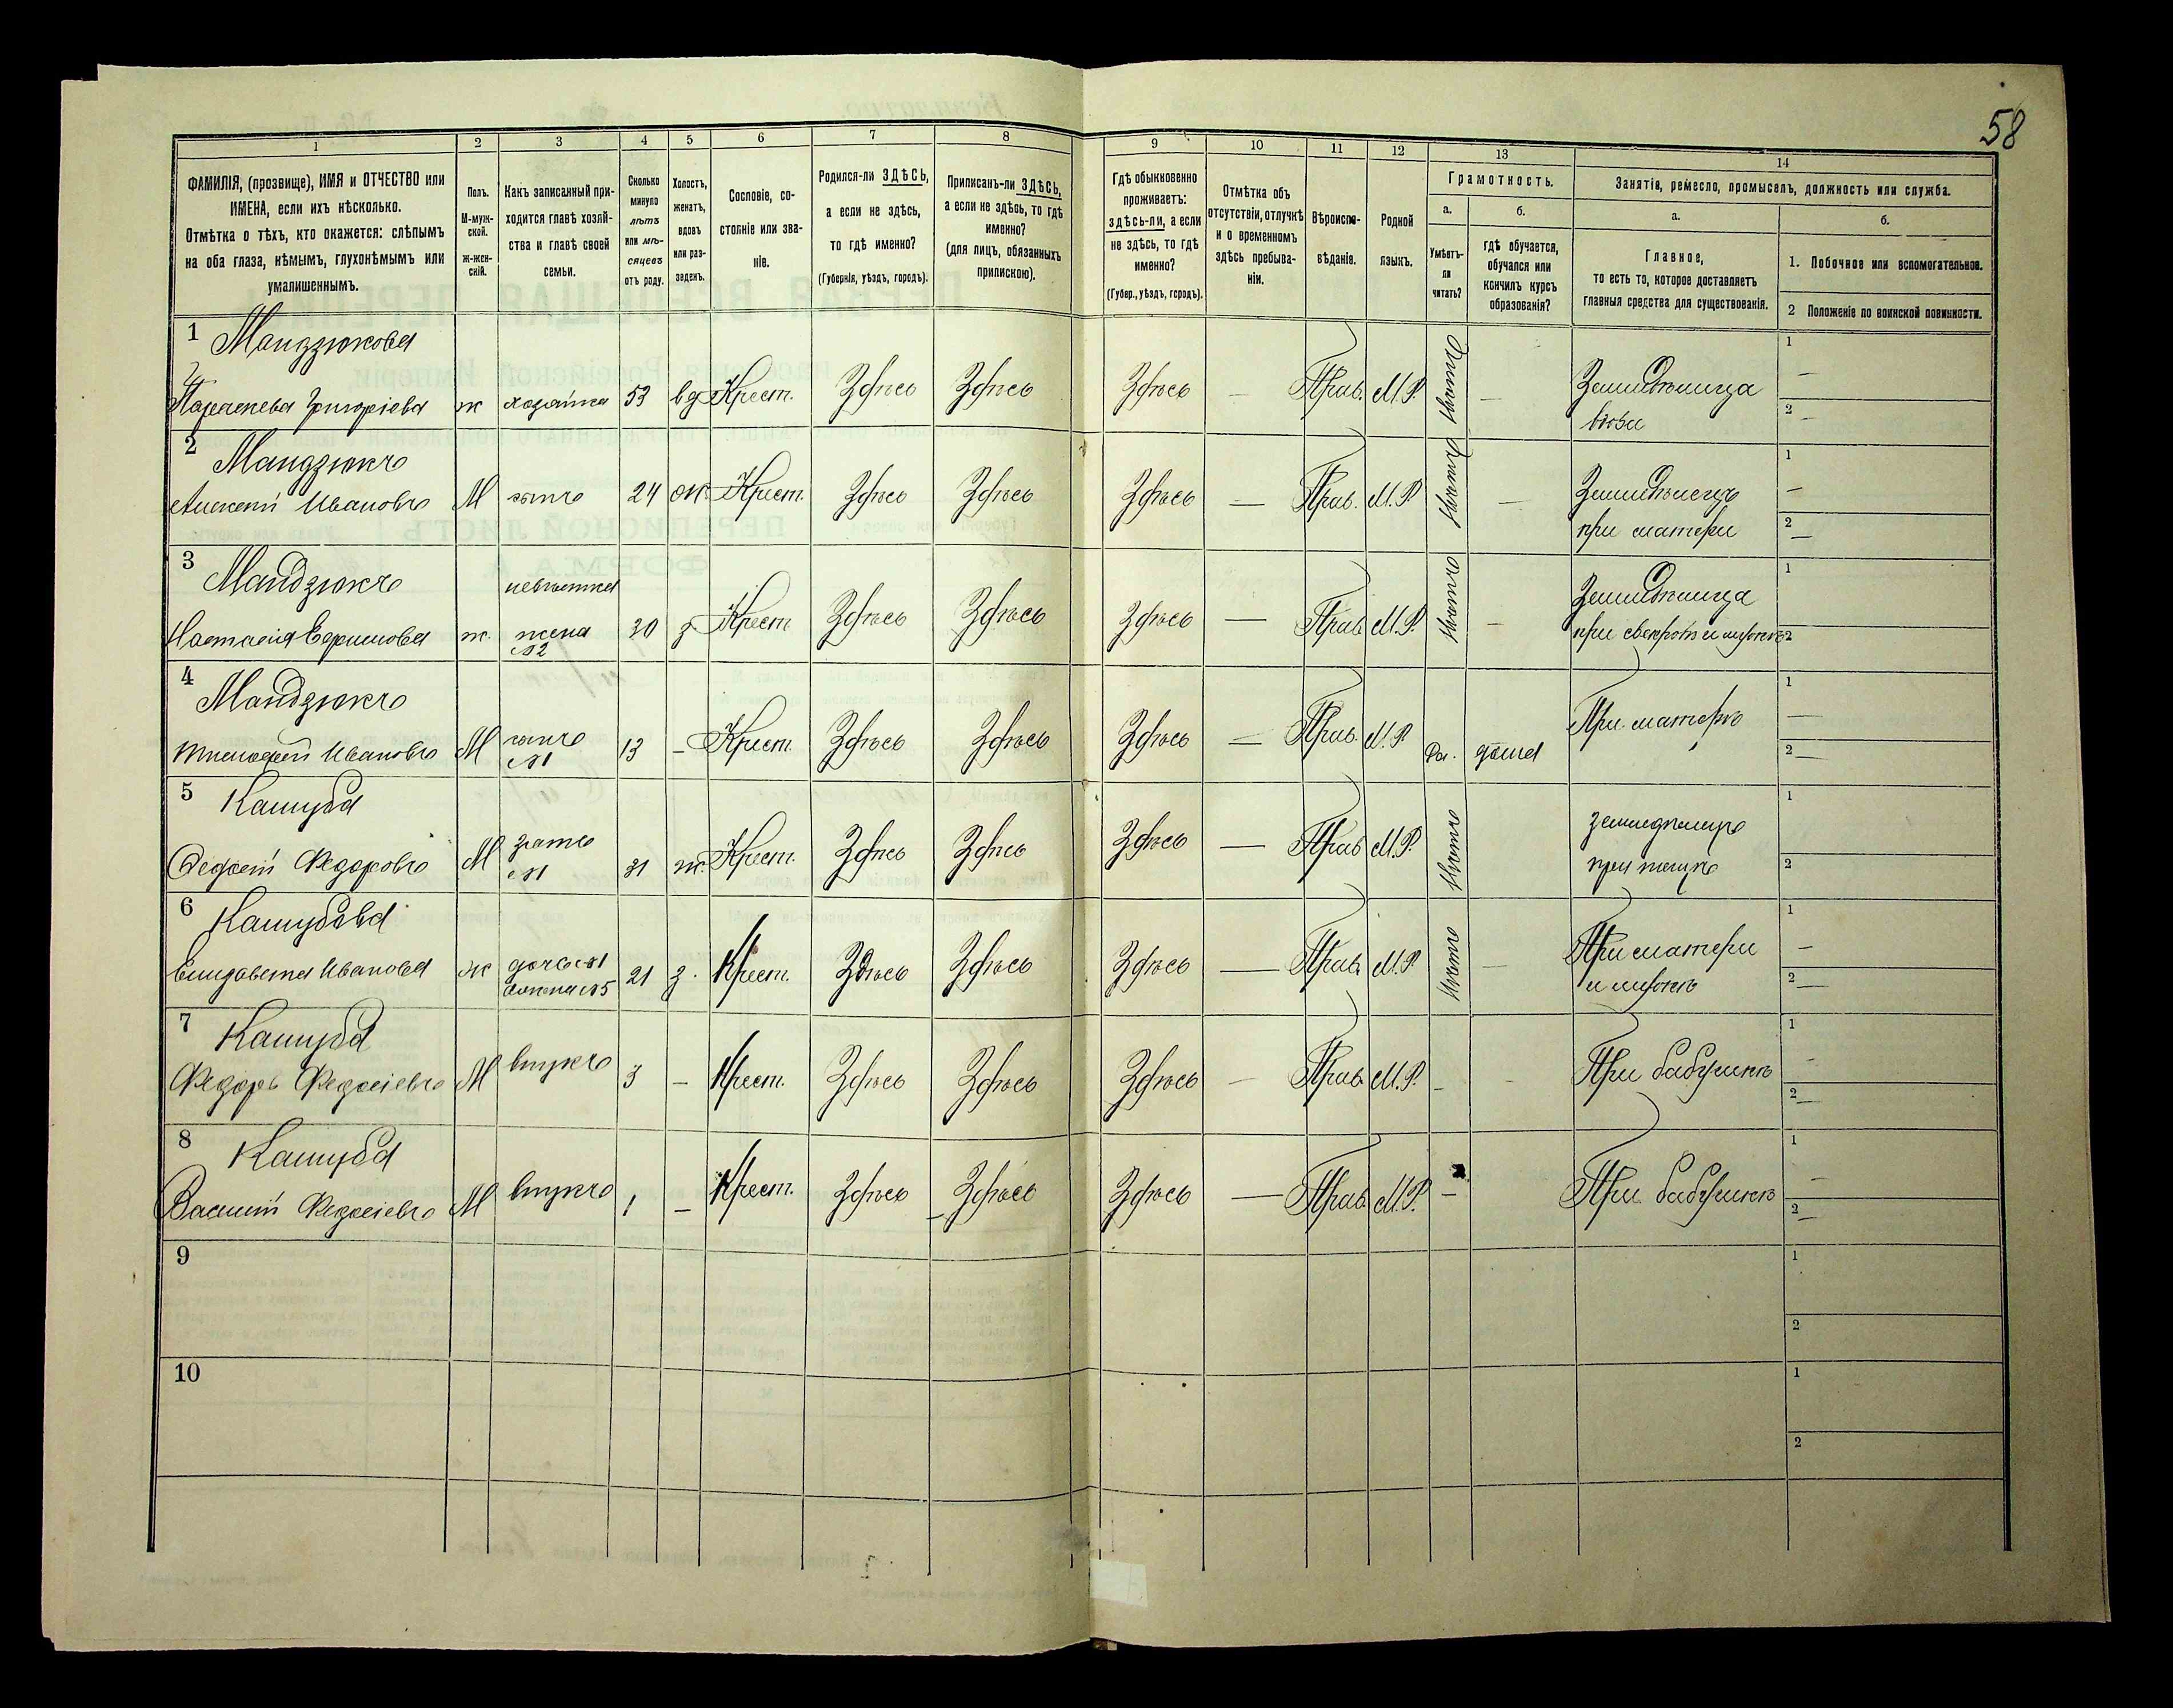 58
1 2 3 4 5 6 7 8 9 10 11 12 13 14
ФАМИЛІЯ, (прозвище), ИМЯ и ОТЧЕСТВО или
ИМЕНА, если ихъ нѣсколько.
Отмѣтка о тѣхъ, кто окажется: слѣпымъ
на оба глаза, нѣмымъ, глухонѣмымъ или
умалишеннымъ.
Полъ.
М-муж-
ской.
ж-жен-
скій.
Какъ записанный при-
ходится главѣ хозяй-
ства и главѣ своей
семьи.
Сколько
минуло
лѣтъ
или мѣ-
сяцевъ
отъ роду.
Холостъ,
женатъ,
вдовъ
или раз-
веденъ.
Сословіе, со-
стояніе или зва-
ніе.
Родился-ли ЗДѢСЬ,
а если не здѣсь,
то гдѣ именно?
(Губернія, уѣздъ, городъ).
Приписанъ-ли ЗДѢСЬ,
а если не здѣсь, то гдѣ
именно?
(для лицъ, обязанныхъ
припискою).
Гдѣ обыкновенно
проживаетъ:
здѣсь-ли, а если
не здѣсь, то гдѣ
именно?
(Губер., уѣздъ, городъ).
Отмѣтка объ
отсутствіи, отлучкѣ
и о временномъ
здѣсь пребыва-
ніи.
Вѣроиспо-
вѣданіе.
Родной
языкъ.
Грамотность.
а.
Умѣетъ-
ли
читать?
б.
гдѣ обучается,
обучался или
кончилъ курсъ
образованія?
Занятія, ремесло, промыселъ, должность или служба.
а.
Главное,
то есть то, которое доставляетъ
главныя средства для существованія.
б.
1. Побочное или вспомогательное.
2 Положеніе по воинской повинности.
1 Мандзюкова
Параскева Григоріева ж хозяйка 53 вд Крест. Здѣсь Здѣсь Здѣсь — Прав. М.Р. Нѣтъ — Земледѣлица
вдова
1 —
2 —
2 Мандзюкъ
Алексѣй Ивановъ М сынъ 24 ж. Крест. Здѣсь Здѣсь Здѣсь — Прав. М.Р. Нѣтъ — Земледѣлецъ
при матери
1 —
2 —
3 Мандзюкъ
невѣстка
Настасія Ефимова ж. жена 20 з Крест. Здѣсь Здѣсь Здѣсь — Прав. М.Р. Нѣтъ — Земледѣлица
№2 при свекрови и мужѣ
1
2
4 Мандзюкъ
Тимофей Ивановъ М сынъ 13 — Крест. Здѣсь Здѣсь Здѣсь — Прав. М.Р. Да. дома При матери
№1
1 —
2 —
5 Кашуба
Федосій Федоровъ М зять 31 ж. Крест. Здѣсь Здѣсь Здѣсь — Прав. М.Р. Нѣтъ земледѣлецъ
№1 при тещѣ
1
2
6 Кашубова
Елизавета Иванова ж дочь №1 21 з. Крест. Здѣсь Здѣсь Здѣсь — Прав. М.Р. Нѣтъ — При матери
жена №5 и мужѣ
1 —
2 —
7 Кашуба
Федоръ Федосіевъ М внукъ 3 — Крест. Здѣсь Здѣсь Здѣсь — Прав. М.Р. — При бабушкѣ
1 —
2 —
8 Кашуба
Василій Федосіевъ М внукъ 1 — Крест. Здѣсь Здѣсь Здѣсь — Прав. М.Р. — При бабушкѣ
1 —
2 —
9
1
2
10
1
2